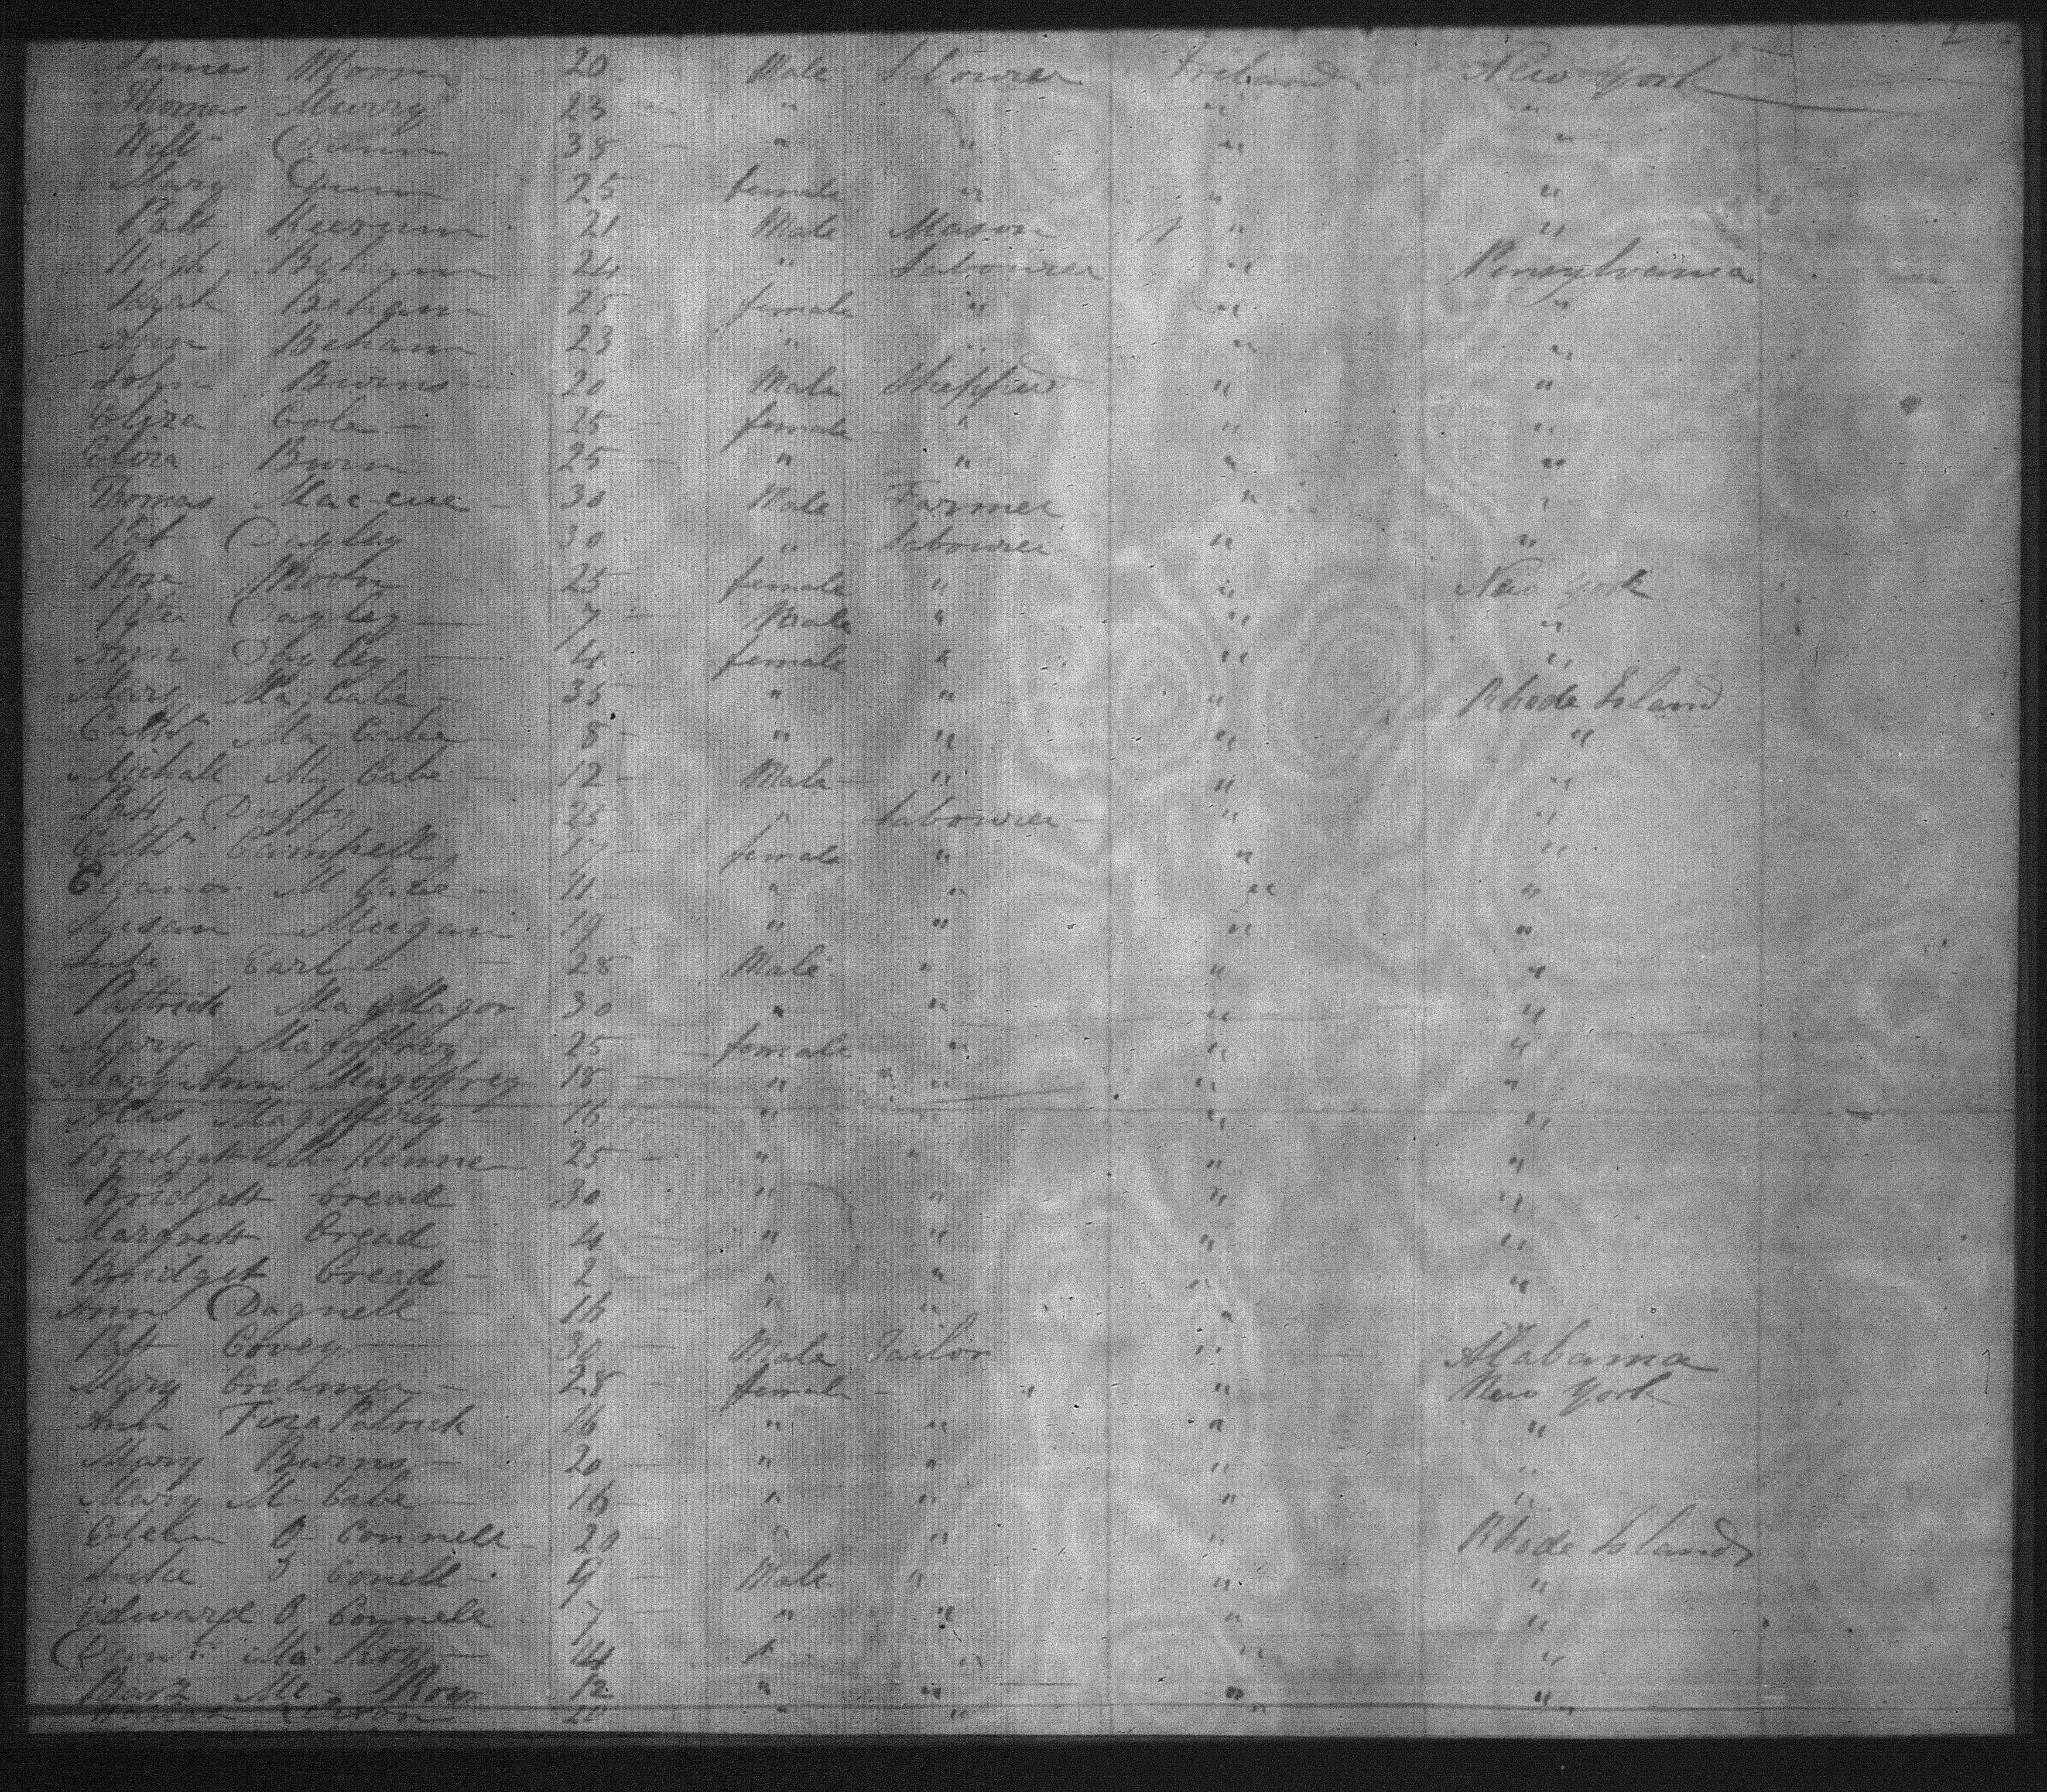 2
James Moorn 20 Male Labourer Ireland New York
Thomas Murry 23 " " " "
Willm Dunn 38 " " " "
Mary Dunn 25 female " " "
Patt Keerum 21 Male Mason " "
Hugh Beham 24 " Labourer " Pensylvania
Sarah Beham 25 female " " "
Ann Beham 23 " " " "
John Burns 20 Male Sheppard " "
Eliza Cole 25 female " " "
Eliza Burn 25 " " " "
Thomas Mac-cue 30 Male Farmer " "
Pat Dagley 30 " Labourer " "
Rose Moorn 25 female " " New York
Peter Dagley 7 Male " " "
Ann Dagley 4 female " " "
Mary Ma Cabe 35 " " " Rhode Island
Cathr Ma Cabe 8 " " " "
Michall Mc Cabe 12 Male " " "
Patt Duffy 25 " Labourer " "
Cathr Campell 17 female " " "
Eleanor M Cabe 11 " " " "
Susan Meegan 19 " " " "
Luke Earl 28 Male " " "
Pattrick Ma Magor 30 " " " "
Mary Magoffrey 25 female " " "
Mary Ann Magoffrey 18 " " " "
Magofferey 16 " " " "
Bridgett M- Kenne 25 " " " "
Bridgett Cread 30 " " " "
Margrett Cread 4 " " " "
Bridget Cread 2 " " " "
Ann Dagnell 16 " " " "
Patt Covey 30 Male Tailor " Alabama
Mary Creamer 28 female " " New York
Ann FizaPatrick 16 " " " "
Mary Burns 20 " " " "
Mary M- Cabe 16 " " " "
Ellen O- Connell 20 " " " Rhode Island
Luke O Conell 9 Male " " "
Edward O Connell 7 " " " "
Ma Roy 14 " " " "
Mc- Row 12 " " " "
20 " " " "